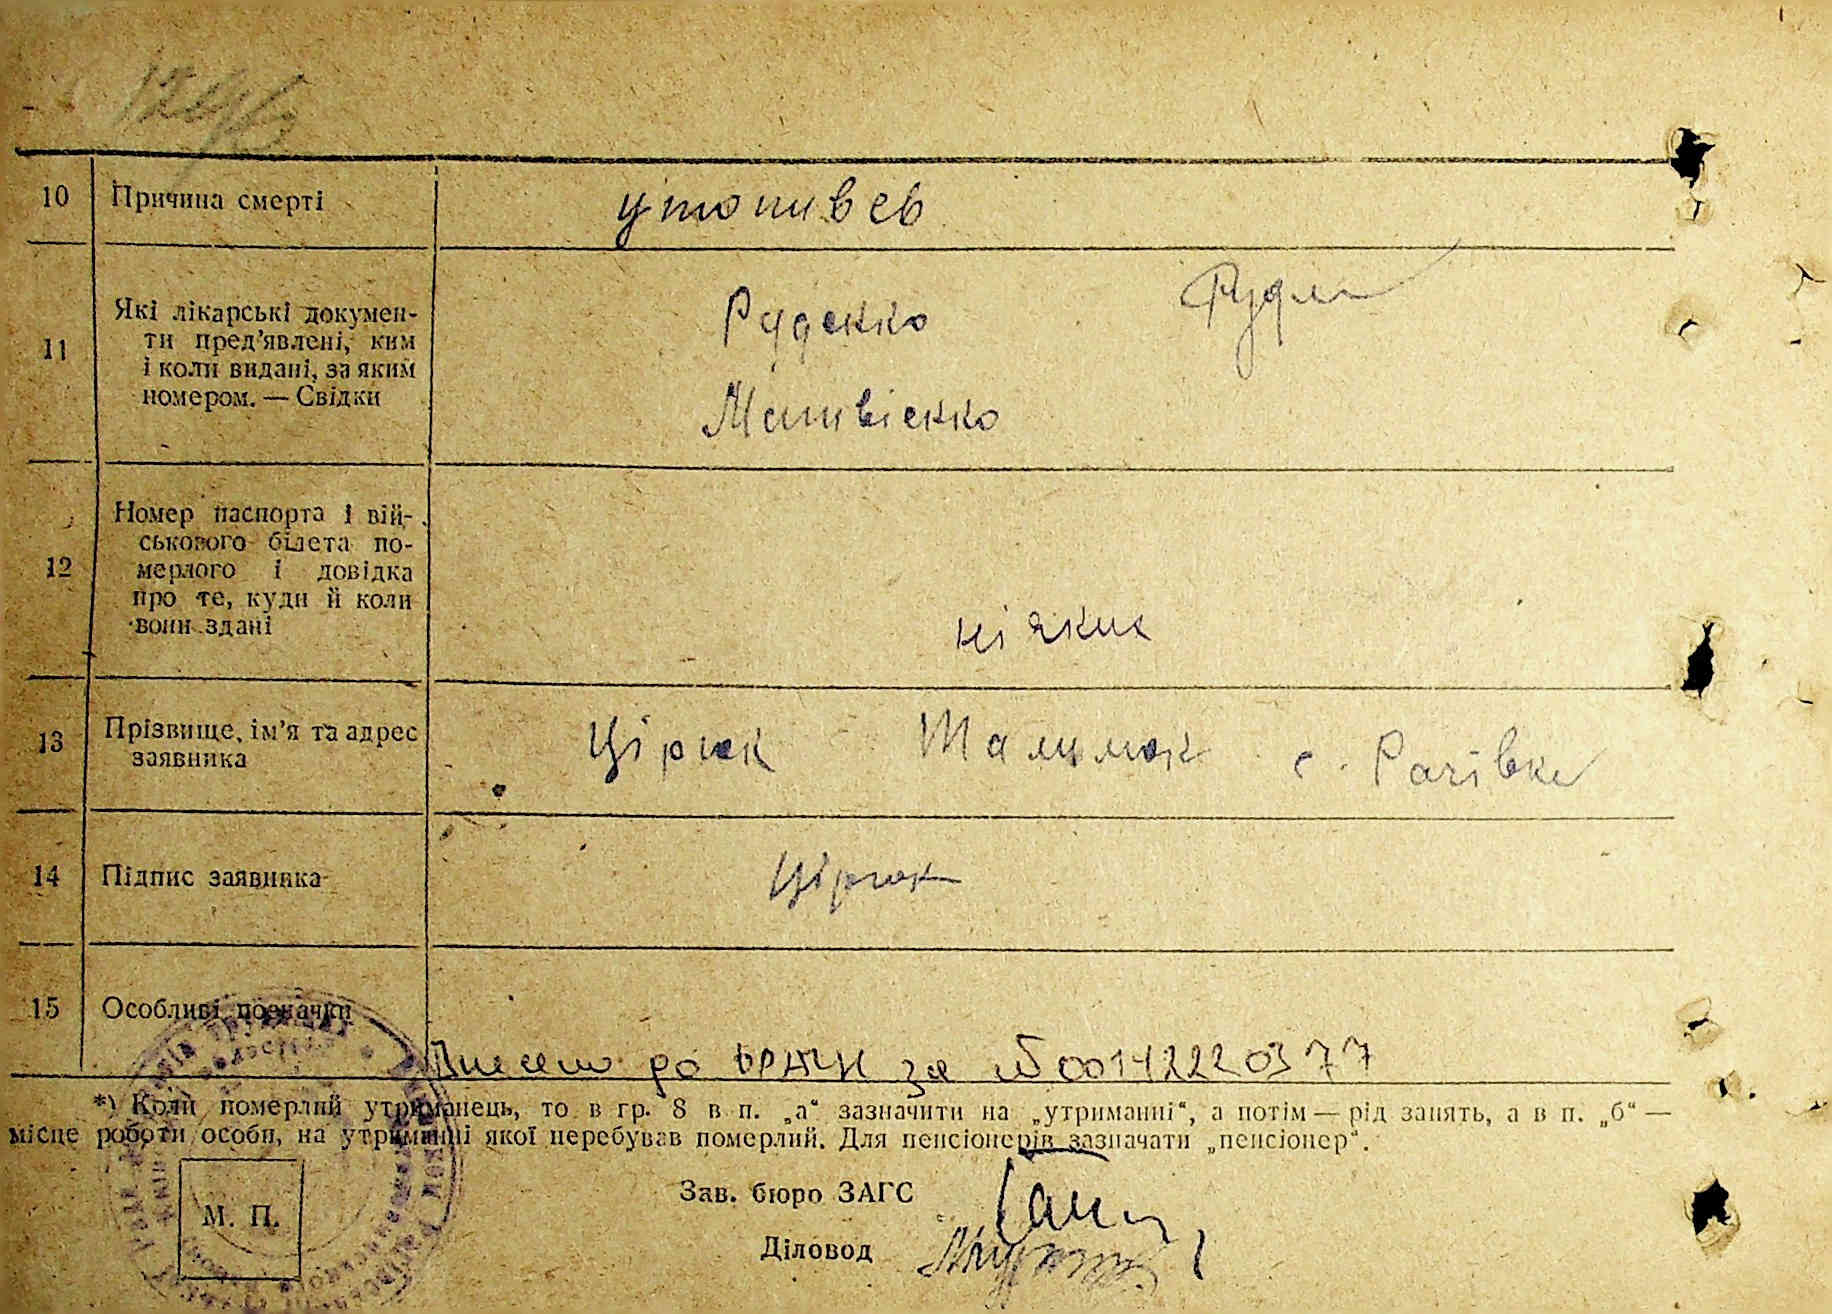 10 Причина смерті утопивсь
11 Які лікарські докумен-
ти пред’явлені, ким
і коли видані, за яким
номером. — Свідки
Руденко
Матвієнко
12 Номер паспорта і вій-
ськового білета по-
мерлого і довідка
про те, куди й коли
вони здані
ніяких
13 Прізвище, ім’я та адрес
заявника
Цірюк с. Рачівка
14 Підпис заявника Цірюк
15 Особливі позначки
Внесено до ДРАЦС за №00142220377
*) Коли померлий утриманець, то в гр. 8 в п. „а“ зазначити на „утриманні“, а потім — рід занять, а в п. „б“ —
місце роботи особи, на утриманні якої перебував померлий. Для пенсіонерів зазначати „пенсіонер“.
М. П.
Зав. бюро ЗАГС
Діловод